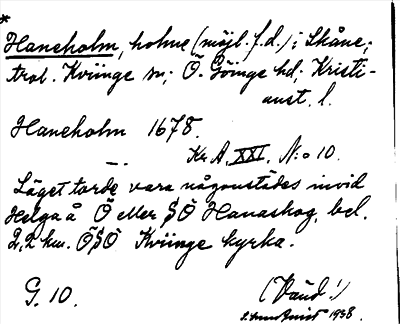 *
Haneholm, holme (möjl. f.d.) i Skåne;
trol. Kviinge sn; Ö. Göinge hd; Kristi-
anst. l.
Haneholm 1678.
Kr. A. XXI. N:o 10.
Läget torde vara någonstädes invid
Helga å Ö eller SÖ Hanaskog, bel.
2,2 km. ÖSÖ Kviinge kyrka.
G. 10.
(Vänd!)
1938.